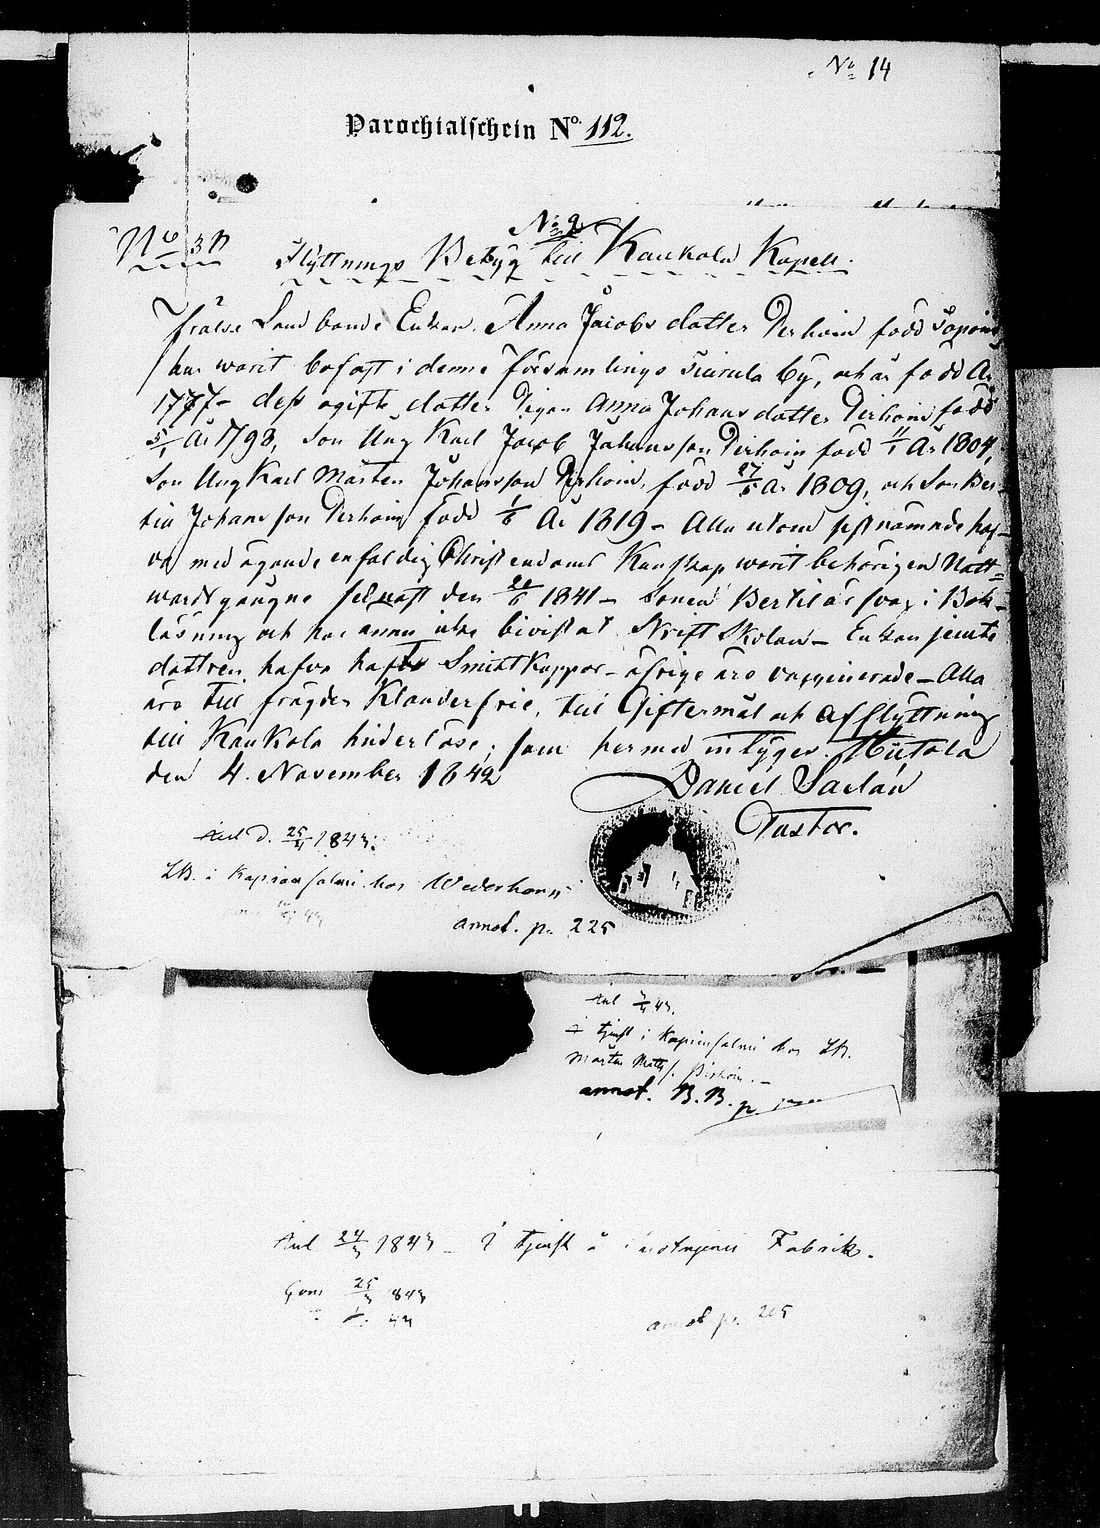 No 14
Parochialschein No. 112.
No 9
No 37
Flyttnings Betyg till Kaukola Kapell.
Frälse Landbonde Enkan Anna Jacobs dotter Pirhoin född Sapoin
har warit bofast i denna församlings Tiurula by, och är född År
1777 – dess ogifta dotter Pigan Anna Johans dotter Pirhoin född
5/1 År 1798, Son Ung Karl Jacob Johansson Pirhoin född 11/1 År 1804,
Son Ung Karl Mårten Johansson Pirhoin, född 27/5 År 1809, och Son Ber-
til Johansson Pirhoin född 1/6 År 1819 – Alla utom sistnämnde haf-
va med ägande enfaldig Christendoms Kunskap warit behörigen Natt=
wards gångne sednast den 20/6 1841 – Sonen Bertil är svag i Bok-
läsning och har annu icke bivistat Skrift Skolan – Enkan jemte
dottren hafva haft Smittkoppor – öfrige äro vaccinerade – Alla
äro till frägden Klanderfrie, till Giftermål och Afflyttning
till Kaukola hinderlöse; som hermed intygar. Hiitola
den 4. November 1842
Daniel Saelán
Pastor.
Anl d. 25/4 1843.
LB. i Kapiansalmi hos Wederhorn
annot. p. 225
Anl 3/4 43.
i tjenst i Kapiansalmi hos LB.
Mårten Matts. Pirhoin
annot. B. B. p.
Anl 24/3 1843 – I tjenst å Fabrik.
25/3 843
44
annot p. 205